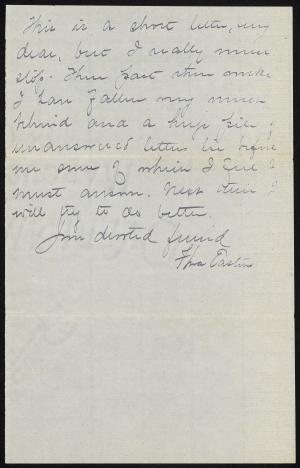 This is a short letter, my
dear, but I really must
stop. These past three weeks
I have fallen very much
behind and a huge pile of
unanswered letters lie before
me some of which I feel I
must answer. Next time I
will try to do better.
Your devoted friend